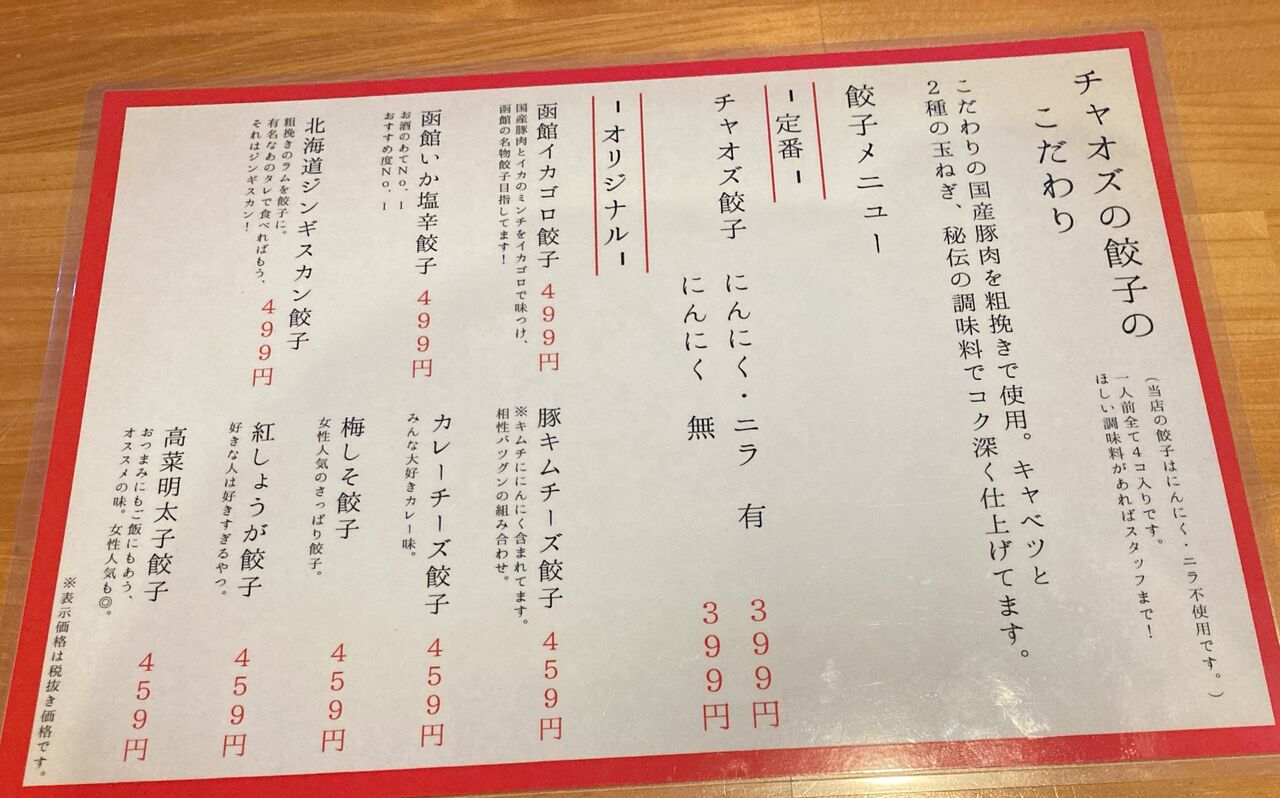 チャオズの餃子の
こだわり
(当店の餃子はにんにく・ニラ不使用です。)
一人前全て4コ入りです。
ほしい調味料があればスタッフまで!
こだわりの国産豚肉を粗挽きで使用。キャベツと
2種の玉ねぎ、秘伝の調味料でコク深く仕上げてます。
餃子メニュー
ー定番ー
チャオズ餃子 にんにく・ニラ 有 399円
にんにく 無 399円
ーオリジナルー
函館イカゴロ餃子 499円
国産豚肉とイカのミンチをイカゴロで味つけ、
函館の名物餃子目指してます!
函館いか塩辛餃子 499円
お酒のあてNo.1
おすすめ度No.1
北海道ジンギスカン餃子 499円
粗挽きのラムを餃子に。
有名なあのタレで食べればもう、
それはジンギスカン!
豚キムチーズ餃子 459円
※キムチににんにく含まれてます。
相性バツグンの組み合わせ。
カレーチーズ餃子 459円
みんな大好きカレー味。
梅しそ餃子 459円
女性人気のさっぱり餃子。
紅しょうが餃子 459円
好きな人は好きすぎるやつ。
高菜明太子餃子 459円
おつまみにもご飯にもあう、
オススメの味。女性人気も◎。
※表示価格は税抜き価格です。